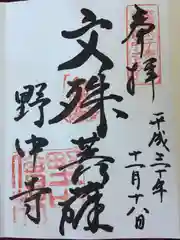 奉拝
平成三十年
十一月十八日
文殊菩薩
野中寺